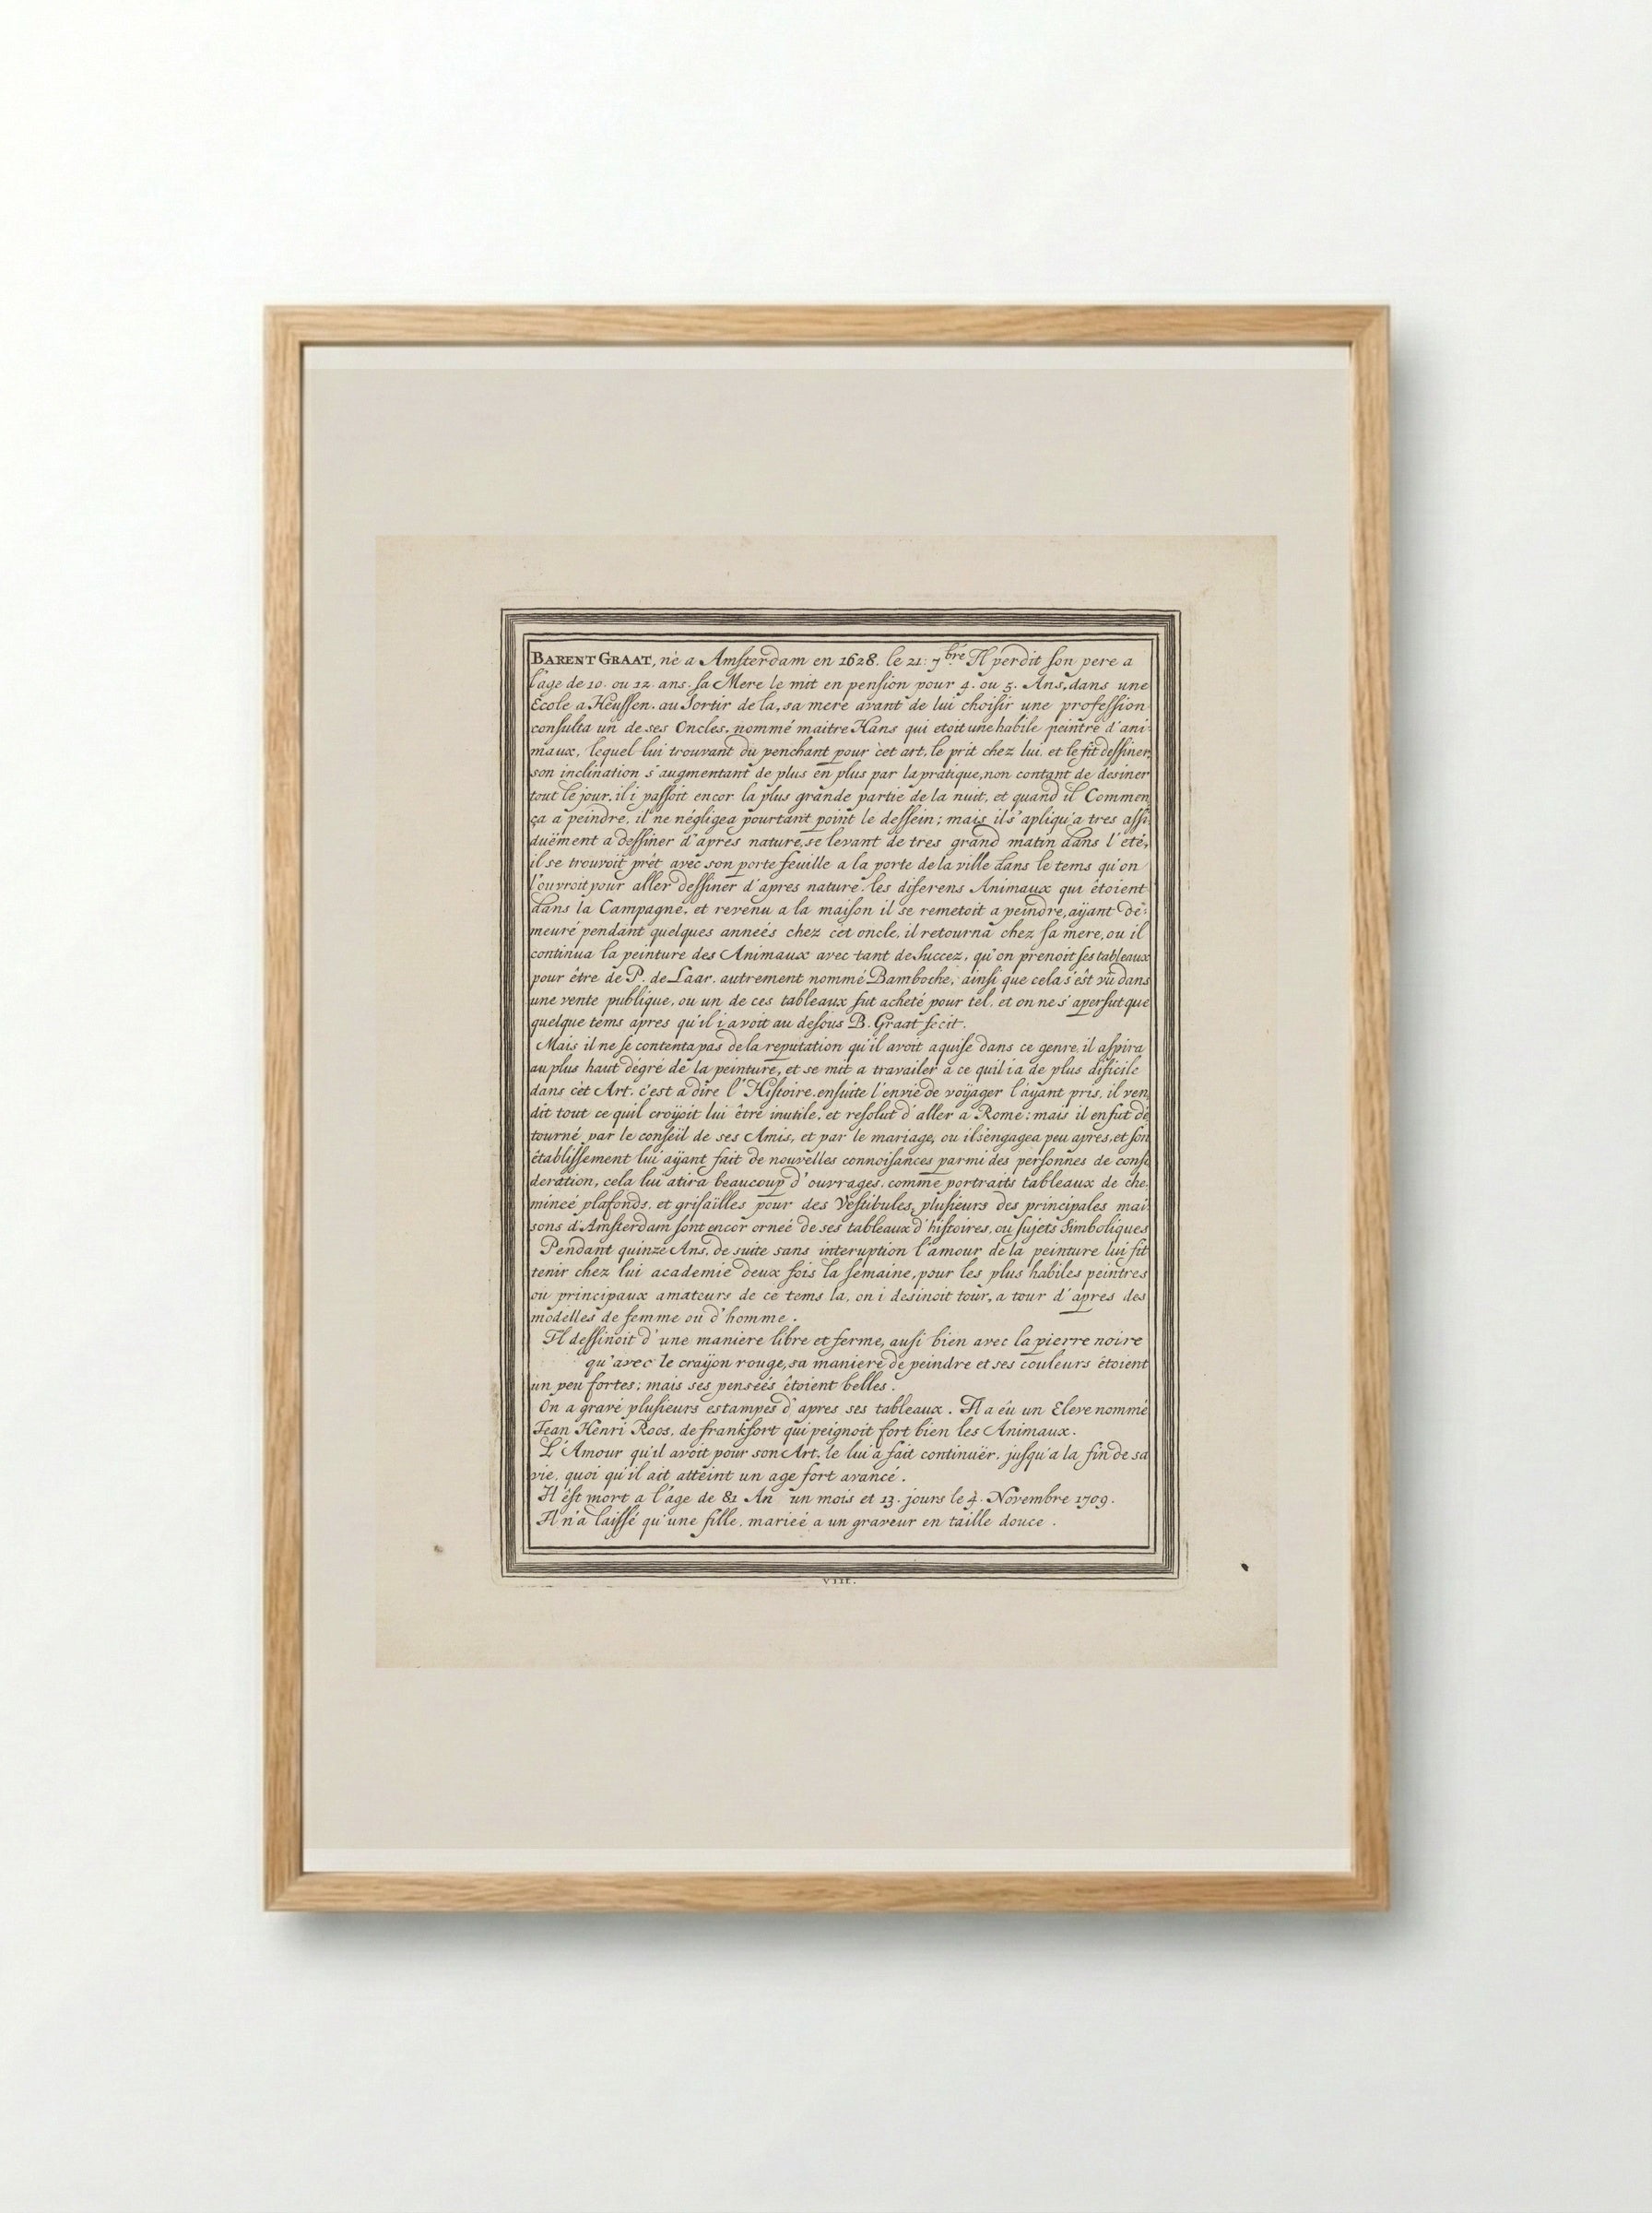 BARENT GRAAT, né a Amsterdam en 1628. le 21. 7bre Il perdit son pere a
l'age de 10. ou 12. ans. sa Mere le mit en pension pour 4. ou 5. Ans, dans une
École a Heussen. au Sortir de la, sa mere avant de lui choisir une profession
consulta un de ses Oncles, nommé maitre Hans qui etoit une habile peintre d'ani-
maux, lequel lui trouvant du penchant pour cet art, le prit chez lui, et le fit dessiner,
son inclination s'augmentant de plus en plus par la pratique, non contant de desiner
tout le jour, il i passoit encor la plus grande partie de la nuit, et quand il Commen
ça a peindre, il ne négligea pourtant point le dessein; mais il s'apliqu'a tres assi-
duëment a dessiner d'apres nature, se levant de tres grand matin dans l'eté,
il se trouvoit prét avec son porte feuille a la porte de la ville dans le tems qu'on
l'ouvroit pour aller dessiner d'apres nature les diferens Animaux qui êtoient
dans la Campagne, et revenu a la maison il se remetoit a peindre, aÿant de-
meuré pendant quelques anneés chez cet oncle, il retourna chez sa mere, ou il
continua la peinture des Animaux avec tant de Succez, qu'on prenoit ses tableaux
pour être de P. de Laar, autrement nommé Bamboche, ainsi que cela s'êst vû dans
une vente publique, ou un de ces tableaux fut acheté pour tel, et on ne s'apersut que
quelque tems apres qu'il i avoit au desous B. Graat fecit.
Mais il ne se contenta pas de la reputation qu'il avoit aquise dans ce genre, il aspira
au plus haut dégré de la peinture, et se mit a travailer a ce quil i a de plus dificile
dans cèt Art, c'est a dire l'Histoire, ensuite l'envie de voÿager l'aÿant pris, il ven,
dit tout ce quil croÿoit lui être inutile, et resolut d'aller a Rome; mais il en fut de
tourné par le conseil de ses Amis, et par le mariage, ou il s'engagea peu apres, et son
établissement lui aÿant fait de nouvelles connoisances parmi des personnes de consi
deration, cela lui atira beaucoup d'ouvrages, comme portraits tableaux de che-
mineé plafonds, et grisaïlles pour des Vestibules, plusieurs des principales mai-
sons d'Amsterdam sont encor orneé de ses tableaux d'histoires, ou sujets Simboliques
Pendant quinze Ans, de suite sans interuption l'amour de la peinture lui fit
tenir chez lui academie deux fois la semaine, pour les plus habiles peintres
ou principaux amateurs de ce tems la, on i desinoit tour, a tour d'apres des
modelles de femme ou d'homme.
Il dessinoit d'une maniere libre et ferme, ausi bien avec la pierre noire
qu'avec le craÿon rouge, sa maniere de peindre et ses couleurs êtoient
un peu fortes; mais ses penseés êtoient belles.
On a gravé plusieurs estampes d'apres ses tableaux. Il a eû un Eleve nommé
Jean Henri Roos, de frankfort qui peignoit fort bien les Animaux.
L'Amour qu'il avoit pour son Art, le lui a fait continuër, jusqu'a la fin de sa
vie, quoi qu'il ait atteint un age fort avancé.
Il êst mort a l'âge de 81 An un mois et 13. jours le 4. Novembre 1709.
Il n'a laissé qu'une fille, marieé a un graveur en taille douce.
VIIE.